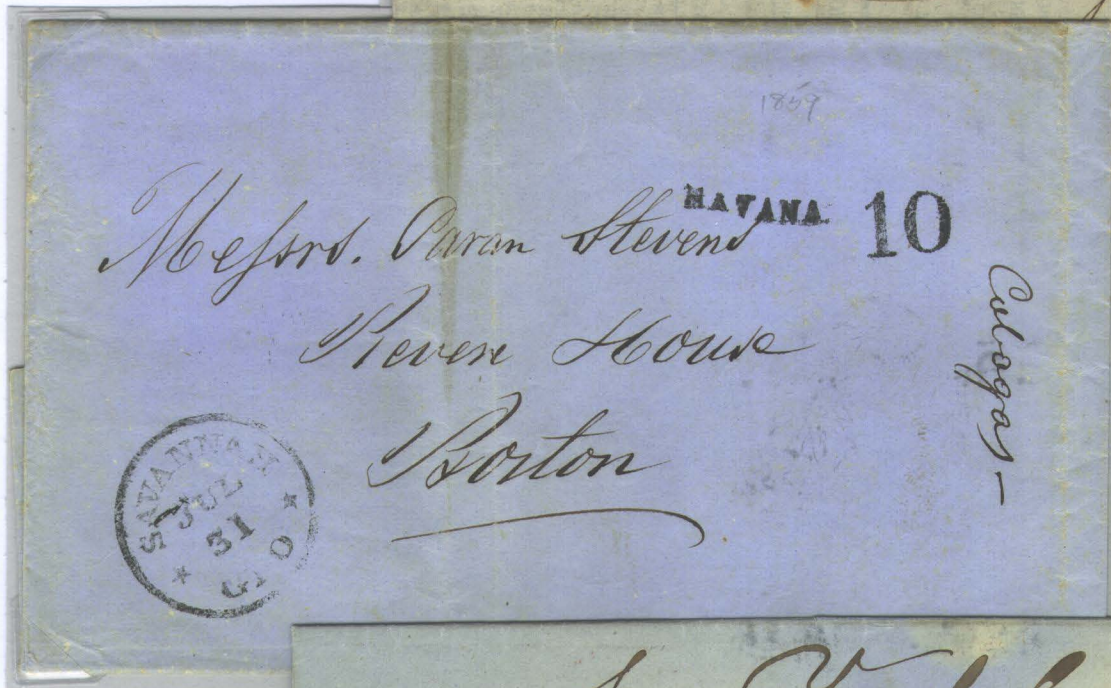 1859
HAVANA
10
Messrs. Paran Stevens
Revere House
Boston
SAVANNAH
JUL
31
GEO